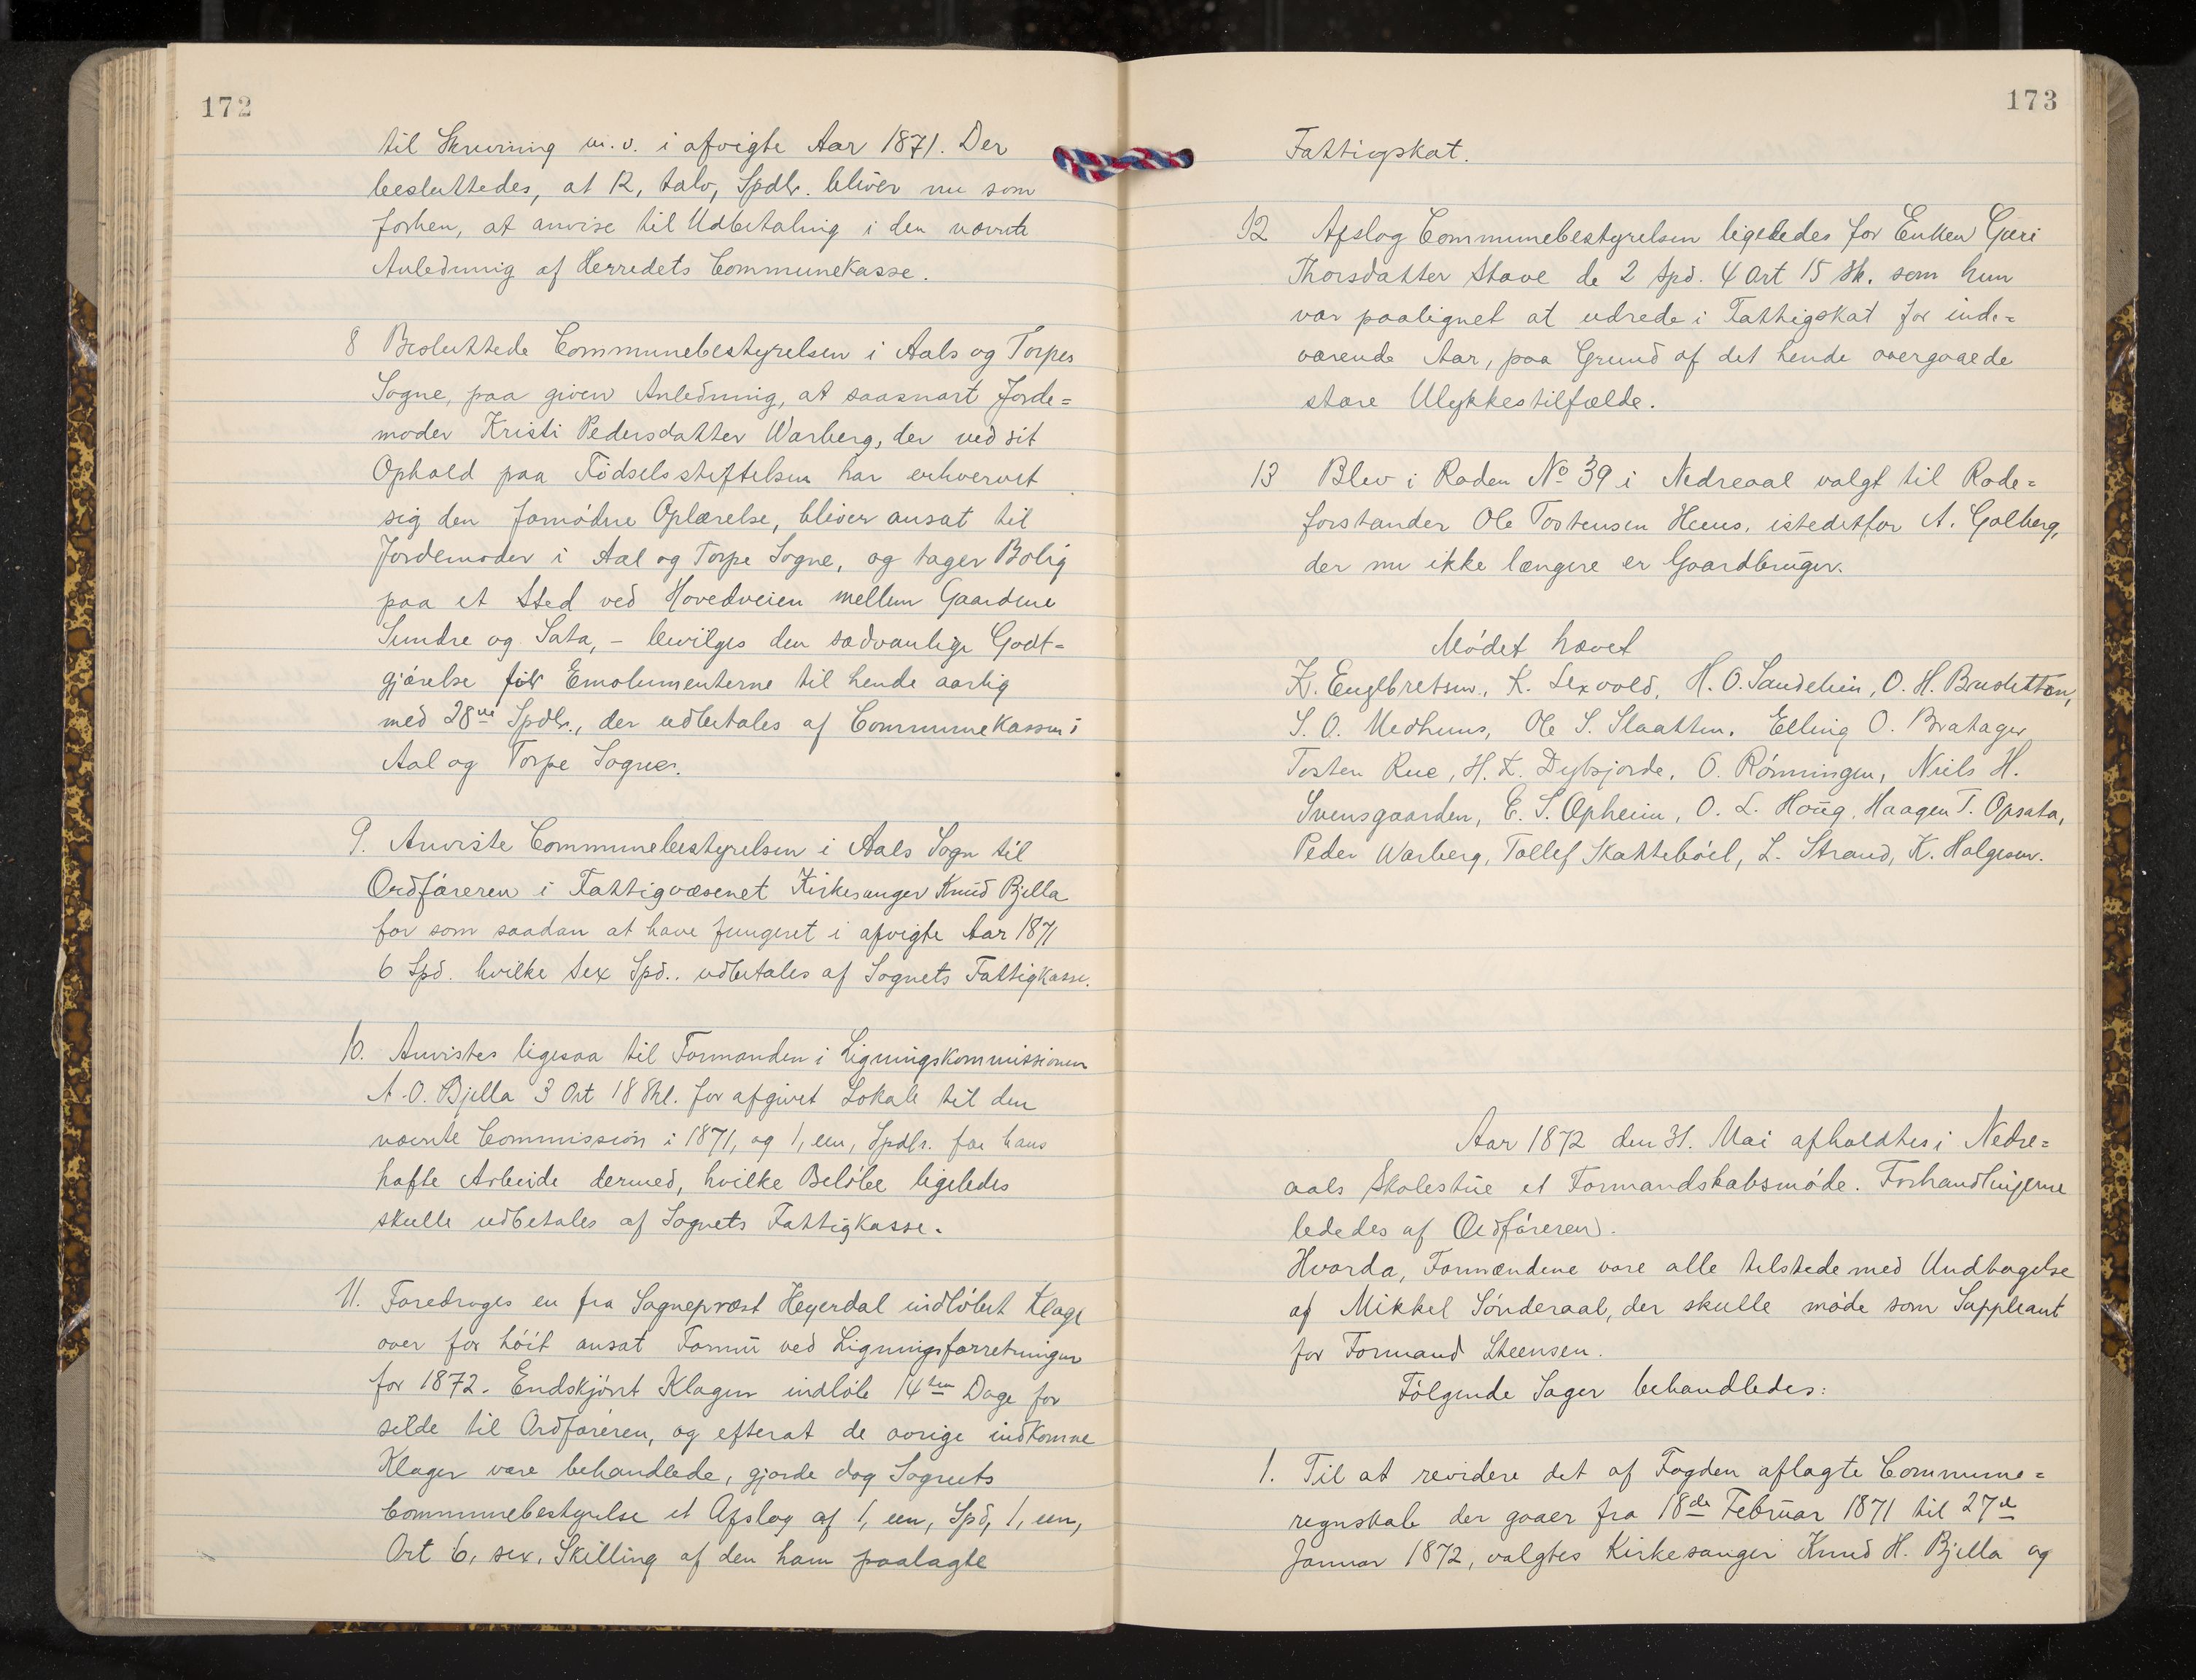 172
til Skruving m.v. i afvigte Aar 1871. Der
besluttedes, at 12, tolv, Spdlr. bliver nu som
forhen, at anvise til Udbetaling i den nævnte
Anledning af Herredets Communekasse.
8 Besluttede Communebestyrelsen i Aals og Torpes
Sogne, paa given Anledning, at saasnart Jorde=
moder Kristi Pedersdatter Warberg, der ved sit
Ophold paa Fødselsstiftelsen har erhvervet
sig den fornødne Oplærelse, bliver ansat til
Jordemoder i Aal og Torpe Sogne, og tager Bolig
paa et Sted ved Hovedveien mellem Gaardene
Sundre og Sata, – bevilges den sædvanlige Godt=
gjørelse for Emolumenterne til hende aarlig
med 28ve Spdlr., der udbetales af Communekassen i
Aal og Torpe Sogner.
9. Anviste Communebestyrelsen i Aals Sogn til
Ordføreren i Fattigvæsenet Kirkesanger Knud Bjella
for som saadan at have fungeret i afvigte Aar 1871
6 Spd. hvilke sex Spd.. udbetales af Sognets Fattigkasse.
10. Anvistes ligesaa til Formanden i Ligningskommissionen
A. O. Bjella 3 Ort 18 Skl. for afgivet Lokale til den
nævnte Commission i 1871, og 1, een, Spdlr. for hans
hafte Arbeide dermed, hvilke Beløbe ligeledes
skulle udbetales af Sognets Fattigkasse.
11. Foredroges en fra Sognepræst Heyerdal indløbet Klage
over for høit ansat Formu ved Ligningsforretningen
for 1872. Endskjønt Klagen indløb 14ten Dage for
silde til Ordføreren, og efterat de øvrige indkomne
Klager vare behandlede, gjorde dog Sognets
Communebestyrelse et Afslag af 1, een, Spd, 1, een,
Ort 6, sex, Skilling af den ham paalagte
173
Fattigskat.
12 Afslog Communebestyrelsen ligeledes for Enken Guri
Thorsdatter Stave de 2 Spd. 4 Ort 15 Sk. som hun
var paalignet at udrede i Fattigskat for inde=
værende Aar, paa Grund af det hende overgaaede
store Ulykkestilfælde.
13 Blev i Roden No 39 i Nedreaal valgt til Rode=
forstander Ole Tostensen Heus, istedetfor A. Golberg,
der nu ikke længere er Gaardbruger.
Mødet hævet
K. Englbretsen., K. Lexvold, H. O. Sandehin, O. H. Brusletten,
S. O. Medhuus, Ole S. Slaatten. Elling O. Bratager
Tosten Rue, H. L. Dybsjorde, O. Rønningen, Niels H.
Svensgaarden, E. S. Opheim, O. L. Houg, Haagen T. Opsata,
Peder Warberg, Tollef Skattebøel, L. Strand, K. Holgesen.
Aar 1872 den 31. Mai afholdtes i Nedre=
aals Skolestue et Formandskabsmøde. Forhandlingerne
lededes af Ordføreren.
Hvorda, Formændene vare alle tilstede med Undtagelse
af Mikkel Sønderaal, der skulle møde som Suppleant
for Formand Steensen.
Følgende Sager behandledes:
1. Til at revidere det af Fogden aflagte Commune=
regnskab der gaaer fra 18de Februar 1871 til 27de
Januar 1872, valgtes Kirkesanger Knud H. Bjella og